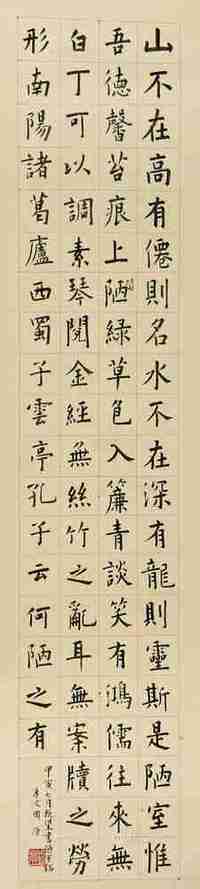 山不在高有僊則名水不在深有龍則靈斯是陋室惟
吾德馨苔痕上陋綠草色入簾青談笑有鴻儒往來無
白丁可以調素琴閱金經無絲竹之亂耳無案牘之勞
形南陽諸葛廬西蜀子雲亭孔子云何陋之有
甲寅七月